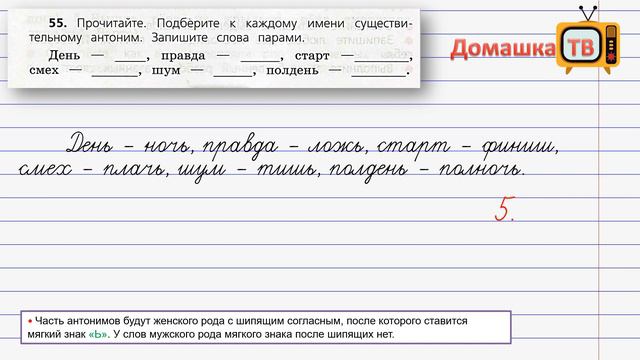 55. Прочитайте. Подберите к каждому имени существи-
тельному антоним. Запишите слова парами.
День — ____, правда — ____, старт — ____,
смех — ____, шум — ____, полдень — ____.
Домашка ТВ
День – ночь, правда – ложь, старт – финиш,
смех – плачь, шум – тишь, полдень – полночь.
5.
• Часть антонимов будут женского рода с шипящим согласным, после которого ставится
мягкий знак «Ь». У слов мужского рода мягкого знака после шипящих нет.